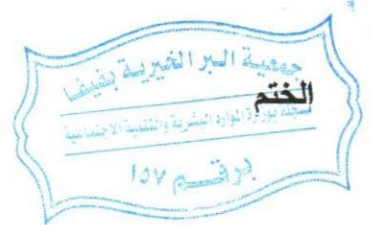 جمعية البر الخيرية بفيفا
الختم
مسجلة بوزارة الموارد البشرية والتنمية الاجتماعية
برقم ١٥٧